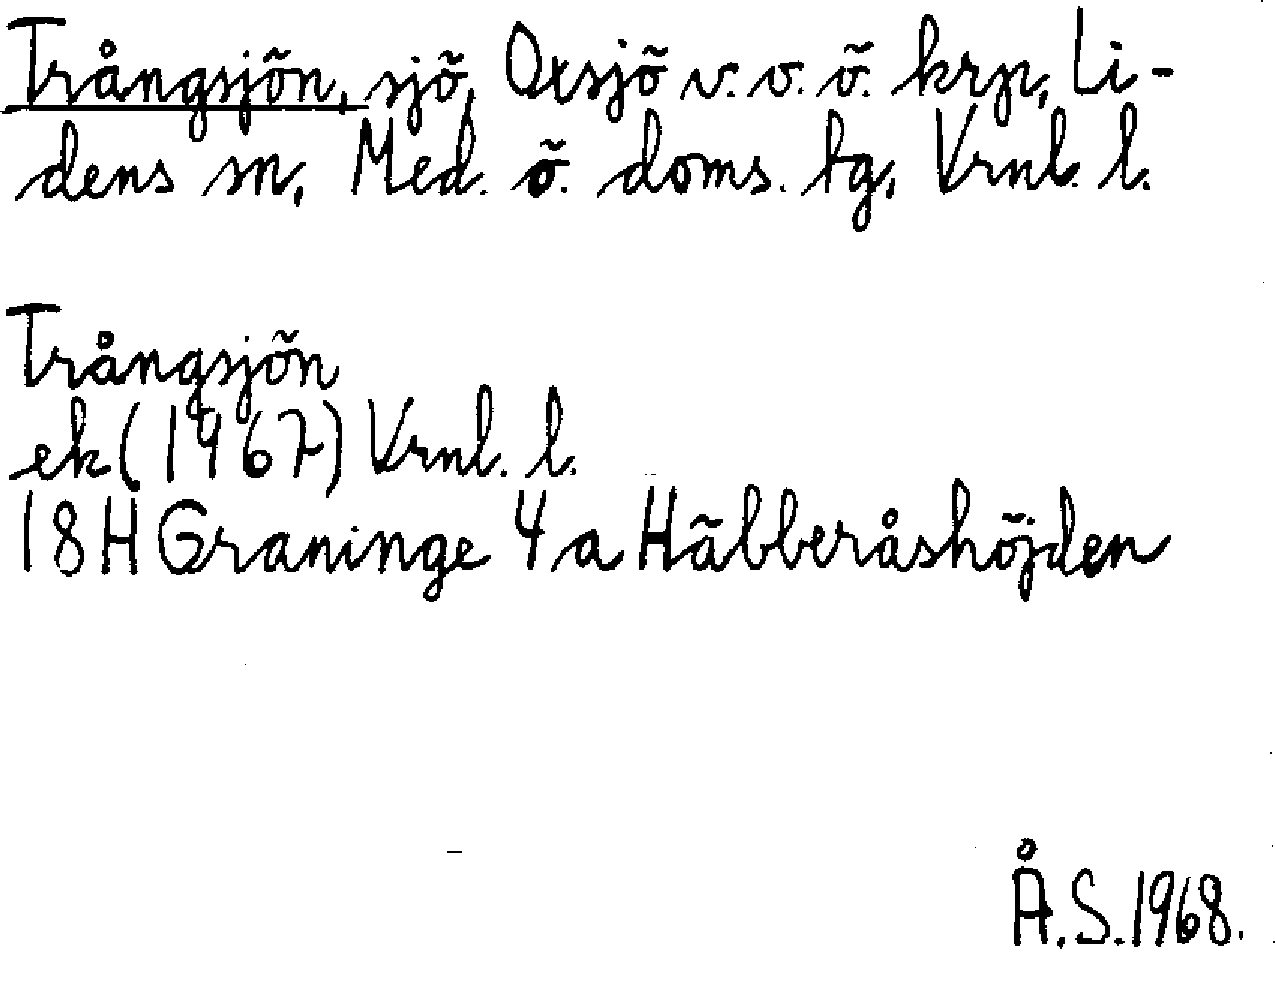 Trångsjön, sjö, Oxsjö v. o. ö. krp, Li-
dens sn, Med. ö. doms. tg, Vrnl. l.
Trångsjön
ek (1967) Vrnl. l.
18H Graninge 4a Häbberåshöjden
Å.S. 1968.